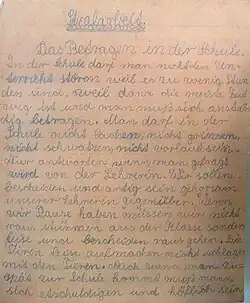 Strafarbeit
Das Betragen in der Schule.
In der Schule darf man nicht den Un-
terricht stören weil er zu wenig Stun
den sind, zweil dann die meiste Zeit
weg ist und man muß sich anstän
dig betragen. Man darf in der
Schule nicht lachen, nicht grinsen,
nicht schwatzen nicht vorlaut sein.
Nur antworten wenn man gefragt
wird von der Lehrerin. Wir sollen
bescheiden und artig sein gehorsam
unserer Lehrerin gegenüber. Wenn
wir Pause haben müssen wir nicht
raus stürmen aus der Klasse sondern
leise und bescheiden raus gehen. Die
Türen leise aufmachen nicht
mit den Türen. Auch wenn man zu
spät zur Schule kommt muß man
sich entschuldigen und höflich sein